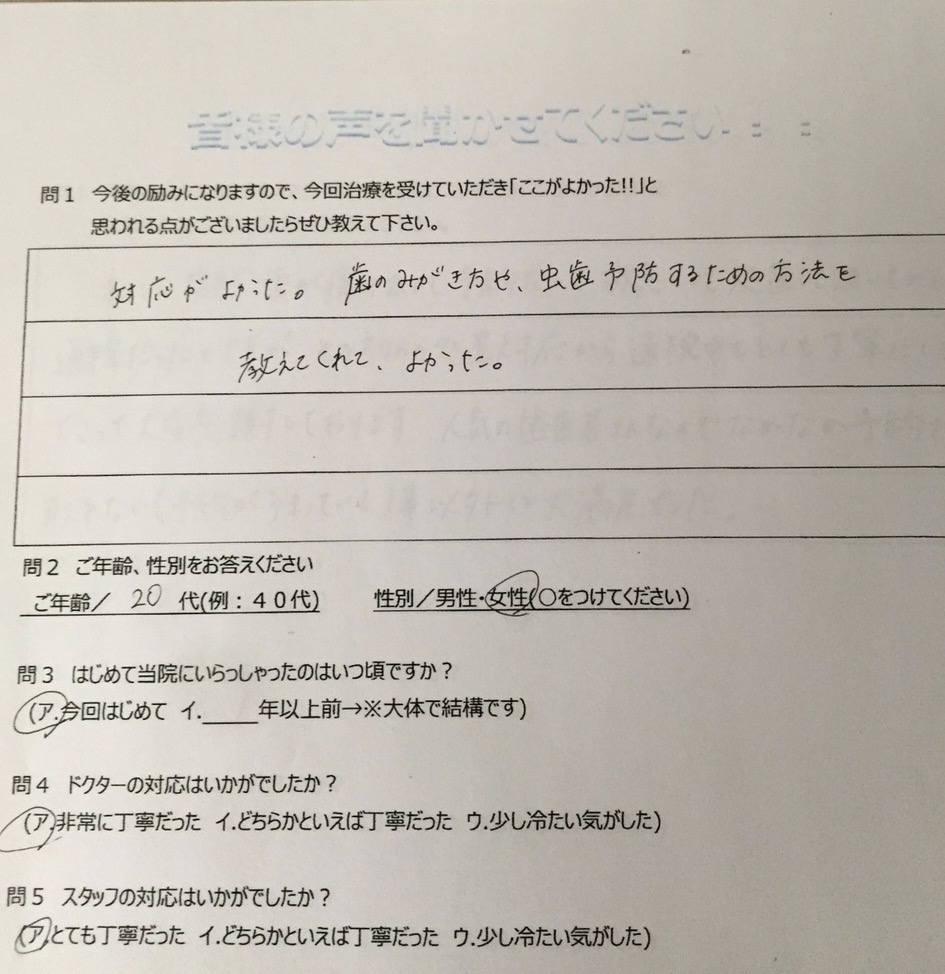 皆様の声を聞かせてください：：
問１ 今後の励みになりますので、今回治療を受けていただき「ここがよかった!!」と
思われる点がございましたらぜひ教えて下さい。
対応がよかった。 歯のみがき方や、虫歯予防するための方法を
教えてくれて、よかった。
問２ ご年齢、性別をお答えください
ご年齢／ 20 代(例：４０代) 性別／男性・女性(○をつけてください)
問３ はじめて当院にいらっしゃったのはいつ頃ですか？
(ア.今回はじめて イ._____年以上前→※大体で結構です)
問４ ドクターの対応はいかがでしたか？
(ア.非常に丁寧だった イ.どちらかといえば丁寧だった ウ.少し冷たい気がした)
問５ スタッフの対応はいかがでしたか？
(ア.とても丁寧だった イ.どちらかといえば丁寧だった ウ.少し冷たい気がした)